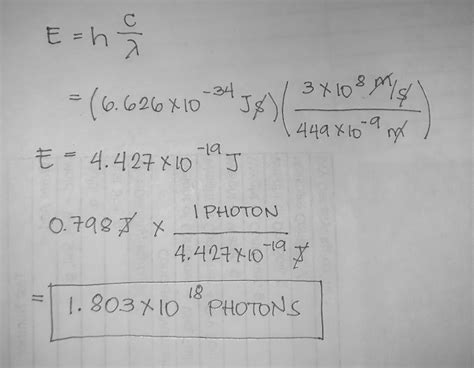 E = h c/λ
= (6.626 × 10⁻³⁴ J s) (3 × 10⁸ m/s / 449 × 10⁻⁹ m)
E = 4.427 × 10⁻¹⁹ J
0.798 J × 1 PHOTON / 4.427 × 10⁻¹⁹ J
= 1.803 × 10¹⁸ PHOTONS